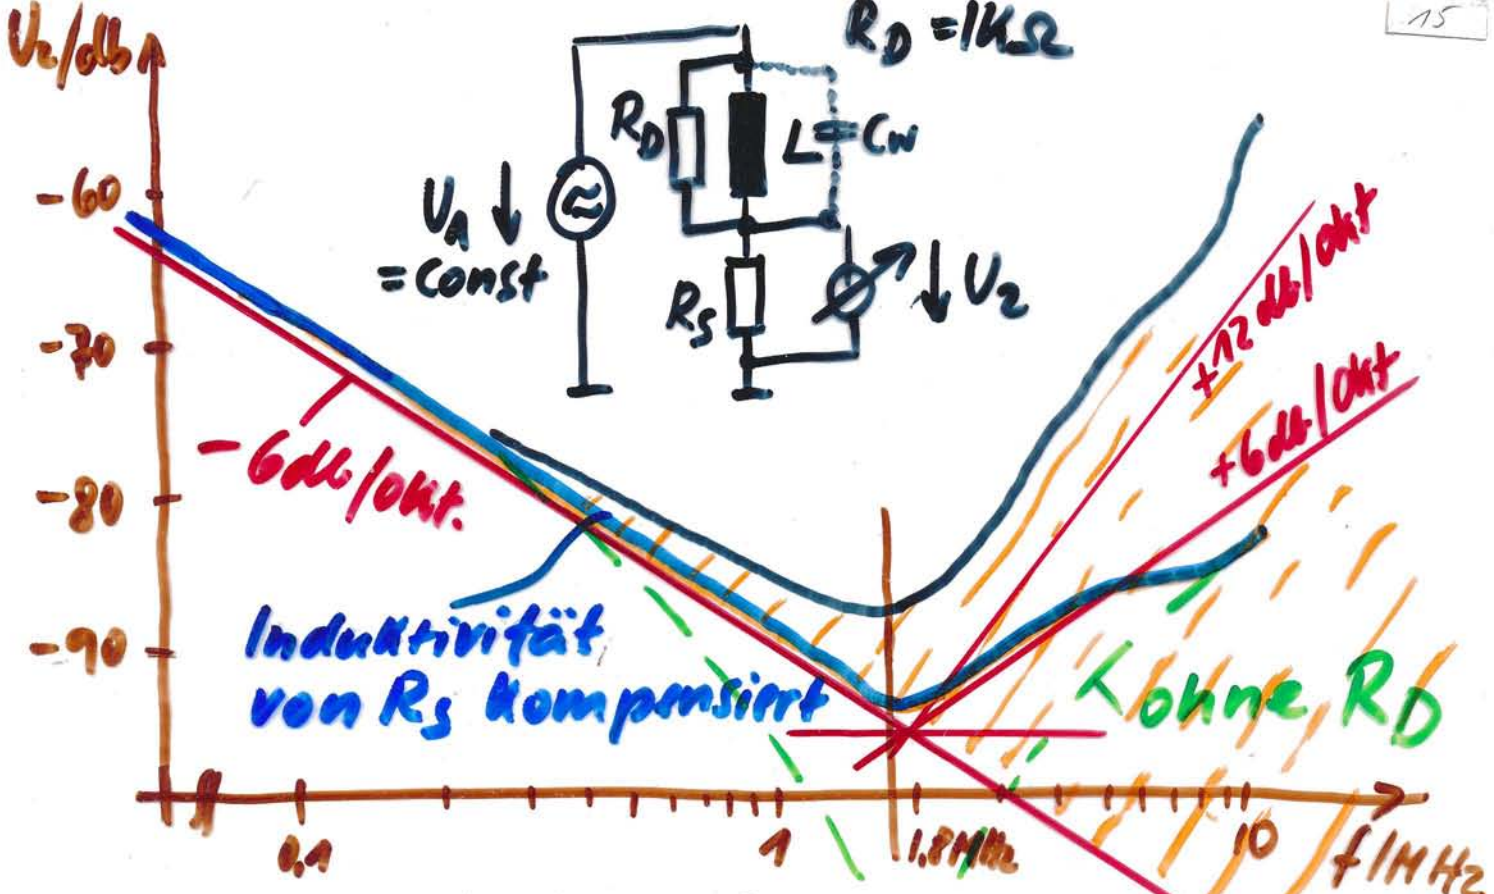 U₂/db
15
R_D = 1KΩ
R_D
L
C_W
-60
U₁
= Const
R_S
U₂
-70
+12 db/Okt
+6 db/Okt
-6 db/Okt.
-80
-90
Induktivität
von R_S kompensiert
ohne R_D
0,1
1
1.8 MHz
10
f/MHz